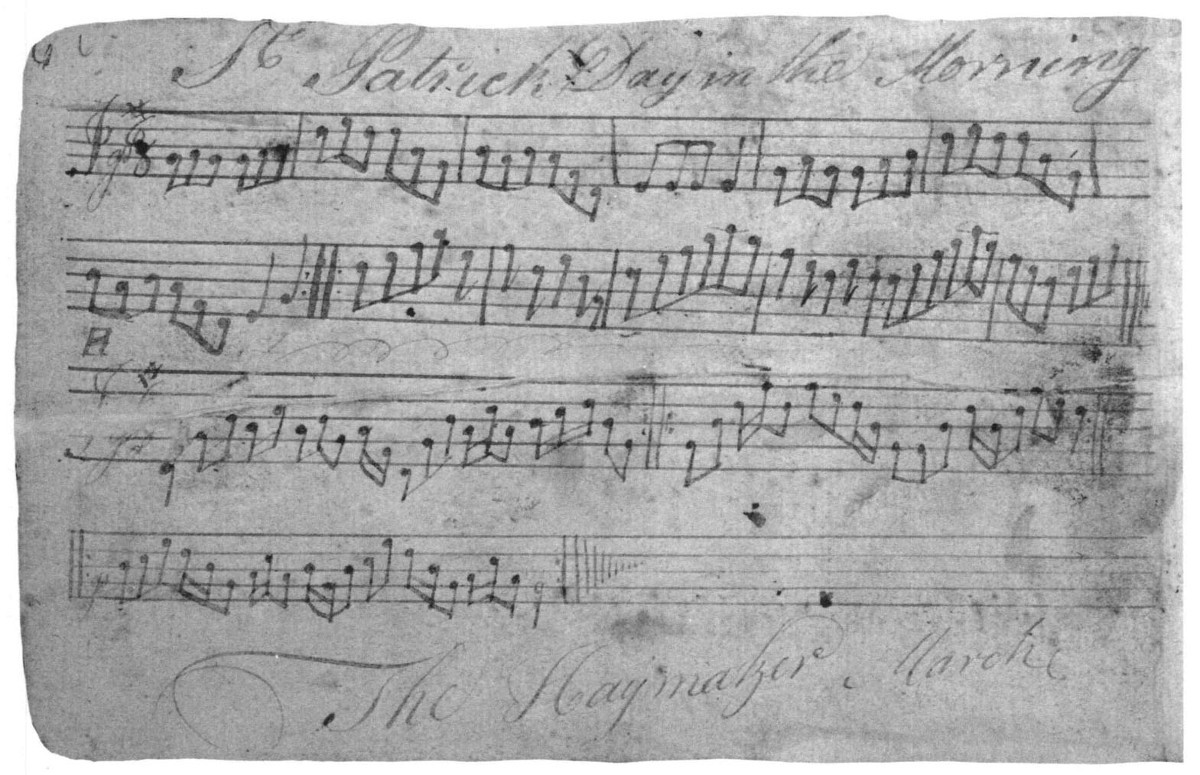 St Patrick Day in the Morning
The Haymaker March